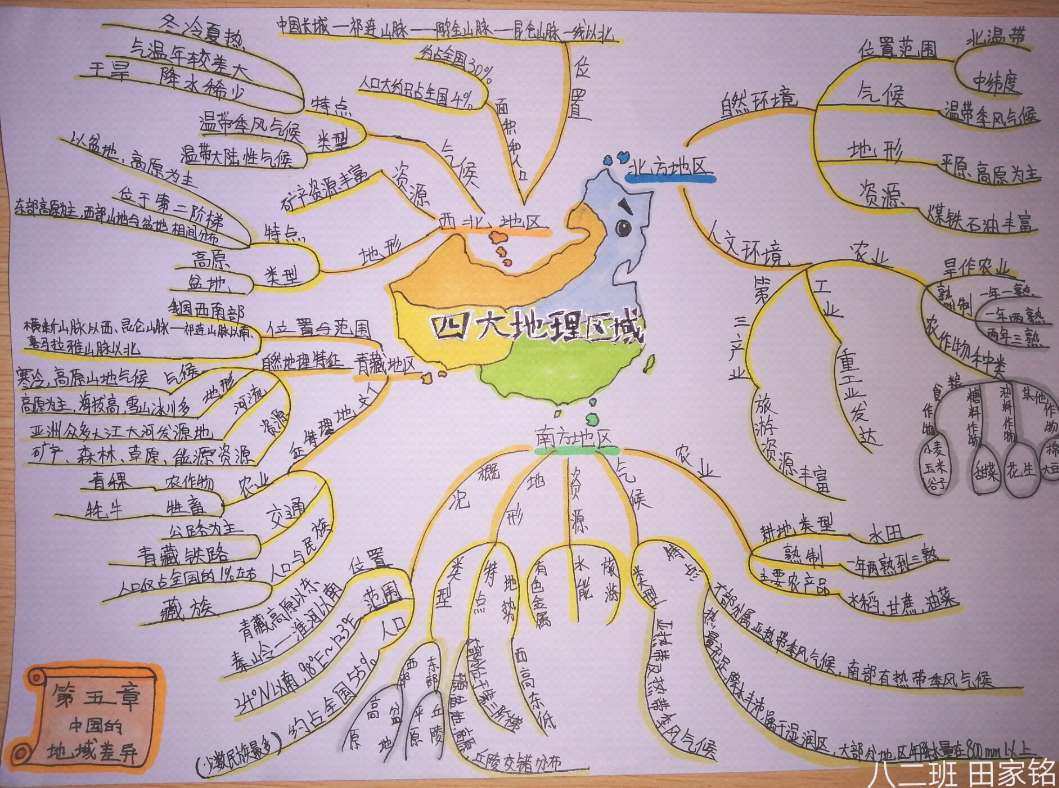 四大地理区域
北方地区
自然环境
位置范围
北温带
中纬度
气候
温带季风气候
地形
平原、高原为主
资源
煤铁石油丰富
人文环境
农业
旱作农业
熟制
一年一熟
一年两熟
两年三熟
农作物种类
粮食作物
小麦
玉米
谷子
糖料作物
甜菜
油料作物
花生
其他作物
工业
重工业发达
第三产业
旅游资源丰富
西北地区
位置
面积和人口
约占全国30%
人口大约只占全国4%
气候
特点
冬冷夏热
气温年较差大
干旱 降水稀少
类型
温带季风气候
温带大陆性气候
资源
矿产资源丰富
地形
特点
以盆地、高原为主
位于第二阶梯
类型
高原
盆地
青藏地区
位置与范围
我国西南部
横断山脉以西、昆仑山脉—祁连山脉以南、
喜马拉雅山脉以北
自然地理特征
气候
寒冷,高原山地气候
地形
高原为主,海拔高,雪山冰川多
河流
亚洲众多大江大河发源地
资源
矿产、森林、草原、能源资源
人文地理特征
农业
农作物
青稞
牲畜
牦牛
交通
公路为主
青藏铁路
人口与民族
人口仅占全国的1%左右
藏族
南方地区
概况
位置
青藏高原以东
范围
秦岭—淮河以南
人口
约占全国55%
(少数民族最多)
地形
类型
西部
高原
盆地
东部
平原
丘陵
特点
丘陵交错分布
地势
西高东低
资源
有色金属
水能
旅游
气候
类型
亚热带及热带季风气候
特点
大部分属亚热带季风气候,南部有热带季风气候
大部分地区年降水量在800mm以上
农业
耕地类型
水田
熟制
一年两熟到三熟
主要农产品
水稻,甘蔗,油菜
第五章
中国的
地域差异
八二班 田家铭